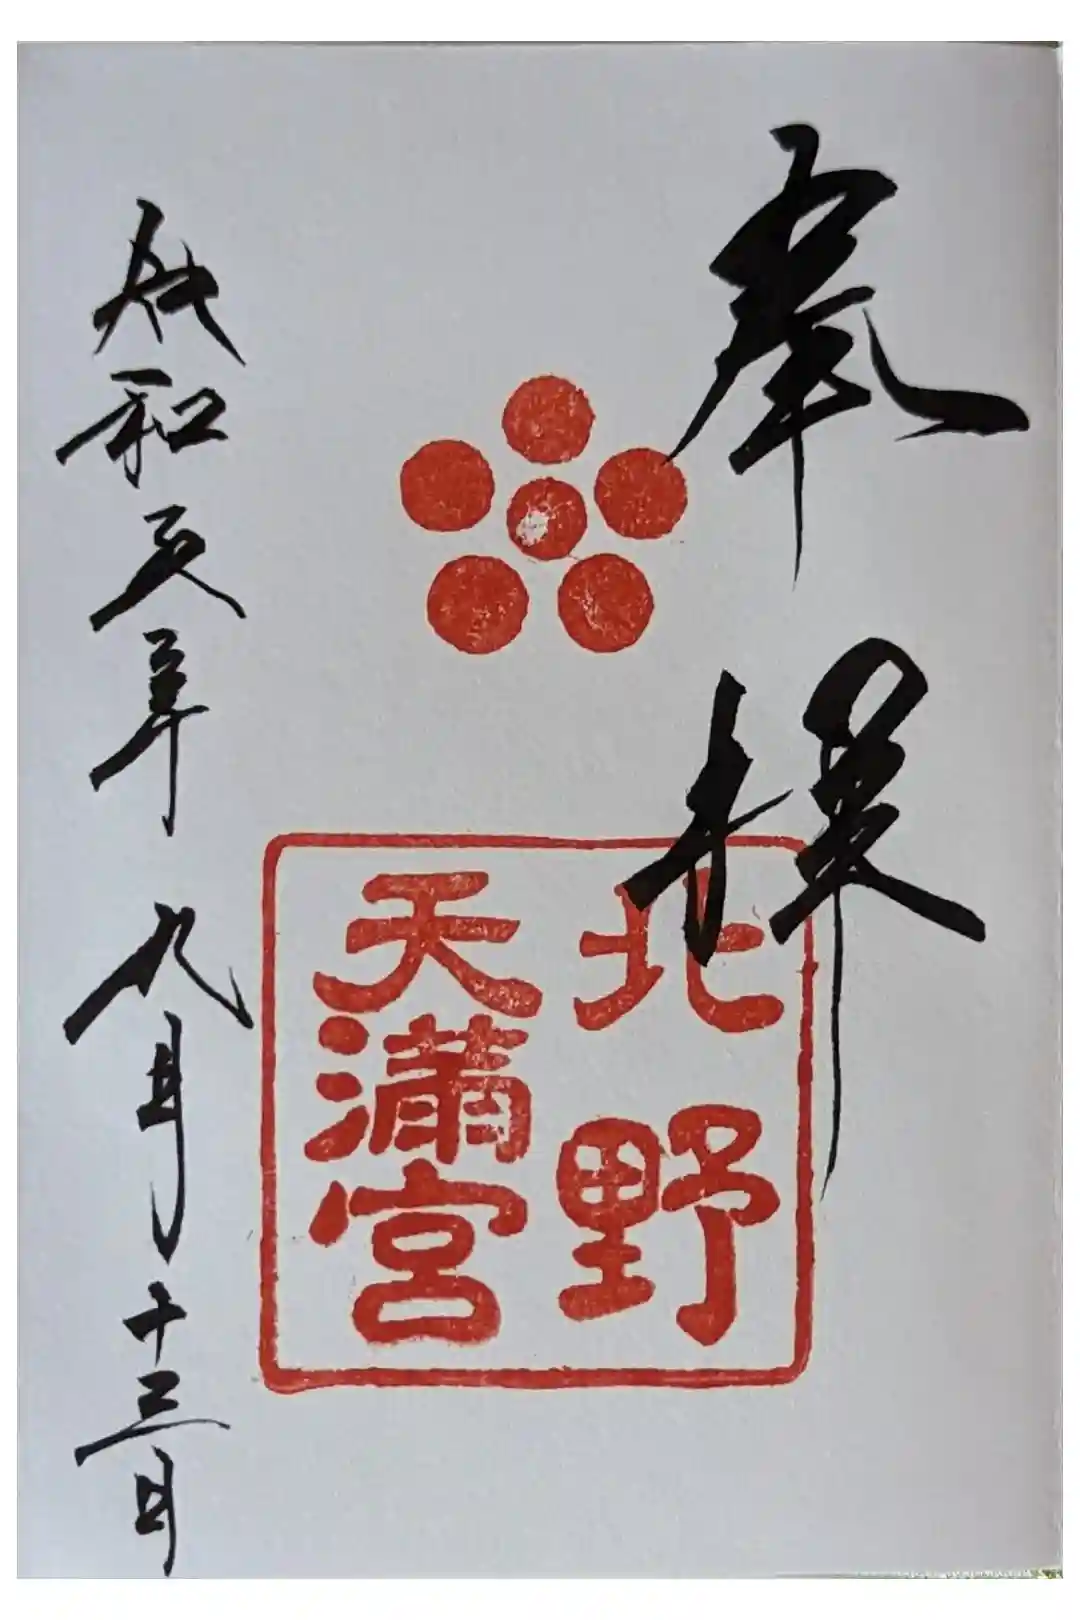 奉拝
北野
天満宮
令和五年九月十三日